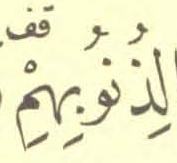 قف
لِذُنُوْبِهِمْ